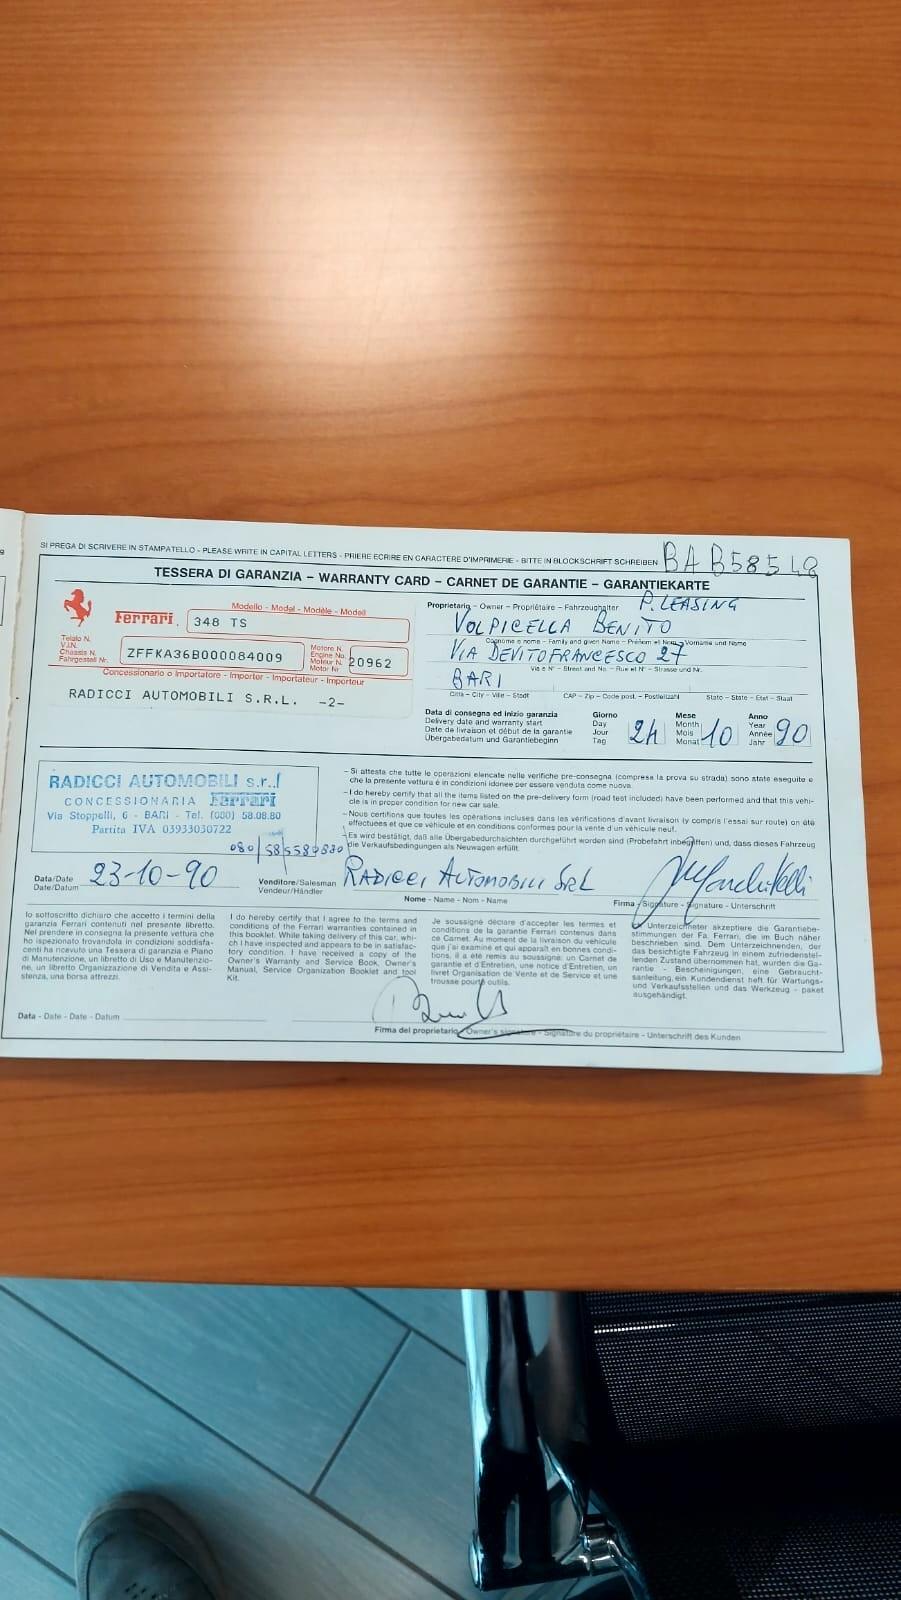 SI PREGA DI SCRIVERE IN STAMPATELLO - PLEASE WRITE IN CAPITAL LETTERS - PRIERE ECRIRE EN CARACTERE D'IMPRIMERIE - BITTE IN BLOCKSCHRIFT SCHREIBEN BA B58548
TESSERA DI GARANZIA – WARRANTY CARD – CARNET DE GARANTIE – GARANTIEKARTE
Ferrari
Modello - Model - Modèle - Modell
348 TS
Telaio N.
V.I.N.
Chassis N.
Fahrgestell Nr.
ZFFKA36B000084009
Motore N.
Engine No.
Moteur N.
Motor Nr.
20962
Concessionario o Importatore - Importer - Importateur - Importeur
RADICCI AUTOMOBILI S.R.L. -2-
Proprietario - Owner - Propriétaire - Fahrzeughalter P. LEASING
VOLPICELLA BENITO
Cognome e nome - Family and given Name - Prénom et Nom - Vorname und Name
VIA DEVITOFRANCESCO 27
Via e N° - Street and No. - Rue et N° - Strasse und Nr.
BARI
Città - City - Ville - Stadt CAP - Zip - Code post. - Postleitzahl Stato - State - Etat - Staat
Data di consegna ed inizio garanzia
Delivery date and warranty start
Date de livraison et début de la garantie
Übergabedatum und Garantiebeginn
Giorno
Day
Jour
Tag
24
Mese
Month
Mois
Monat
10
Anno
Year
Année
Jahr
90
RADICCI AUTOMOBILI s.r.l
CONCESSIONARIA Ferrari
Via Stoppelli, 6 - BARI - Tel. (080) 58.08.80
Partita IVA 03933030722
– Si attesta che tutte le operazioni elencate nelle verifiche pre-consegna (compresa la prova su strada) sono state eseguite e
che la presente vettura è in condizioni idonee per essere venduta come nuova.
– I do hereby certify that all the items listed on the pre-delivery form (road test included) have been performed and that this vehi-
cle is in proper condition for new car sale.
– Nous certifions que toutes les opérations incluses dans les vérifications d'avant livraison (y compris l'essai sur route) on été
effectuées et que ce véhicule et en conditions conformes pour la vente d'un véhicule neuf.
– Es wird bestätigt, daß alle Übergabedurchsichten durchgeführt worden sind (Probefahrt inbegriffen) und, dass dieses Fahrzeug
die Verkaufsbedingungen als Neuwagen erfüllt.
Data/Date
Date/Datum
23-10-90
Venditore/Salesman
Vendeur/Händler
RADICCI AUTOMOBILI SRL
Nome - Name - Nom - Name
Firma - Signature - Signature - Unterschrift
Io sottoscritto dichiaro che accetto i termini della
garanzia Ferrari contenuti nel presente libretto.
Nel prendere in consegna la presente vettura che
ho ispezionato trovandola in condizioni soddisfa-
centi ha ricevuto una Tessera di garanzia e Piano
di Manutenzione, un libretto di Uso e Manutenzio-
ne, un libretto Organizzazione di Vendita e Assi-
stenza, una borsa attrezzi.
I do hereby certify that I agree to the terms and
conditions of the Ferrari warranties contained in
this booklet. While taking delivery of this car, whi-
ch I have inspected and appears to be in satisfac-
tory condition. I have received a copy of the
Owner's Warranty and Service Book, Owner's
Manual, Service Organization Booklet and tool
Kit.
Je soussigné déclare d'accepter les termes et
conditions de la garantie Ferrari contenus dans
ce Carnet. Au moment de la livraison du véhicule
que j'ai examiné et qui apparaît en bonnes condi-
tions, il a été remis au soussigné: un Carnet de
garantie et d'Entretien, une notice d'Entretien, un
livret Organisation de Vente et de Service et une
trousse pourte outils.
Unterzeichneter akzeptiere die Garantiebe-
stimmungen der Fa. Ferrari, die im Buch näher
beschrieben sind. Dem Unterzeichneten, der
das besichtigte Fahrzeug in einem zufriedenstel-
lenden Zustand übernommen hat, wurden die Ga-
rantie - Bescheinigungen, eine Gebraucht-
sanleitung, ein Kundendienst heft für Wartungs-
und Verkaufsstellen und das Werkzeug - paket
ausgehändigt.
Data - Date - Date - Datum
Firma del proprietario - Owner's signature - Signature du propriétaire - Unterschrift des Kunden